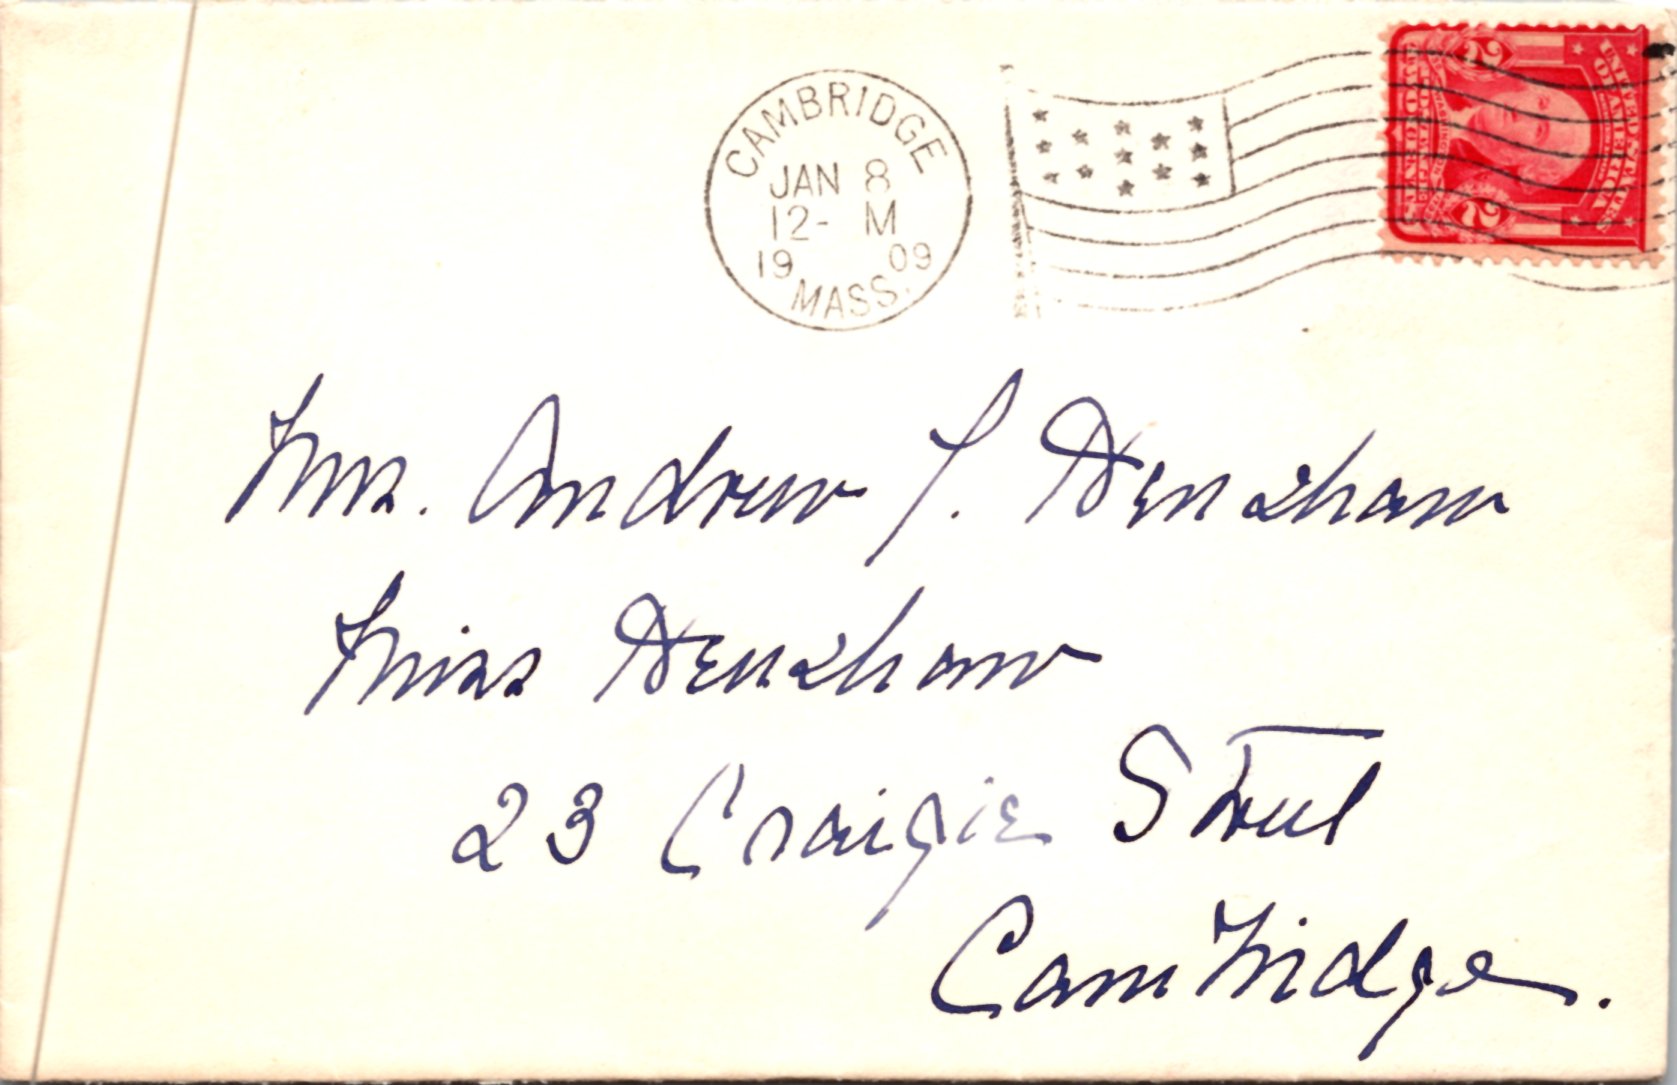 CAMBRIDGE
JAN 8
12- M
19 09
MASS.
2 2
UNITED STATES OF AMERICA
Mrs. Andrew P. Henshaw
Miss Henshaw
23 Craigie Street
Cambridge.